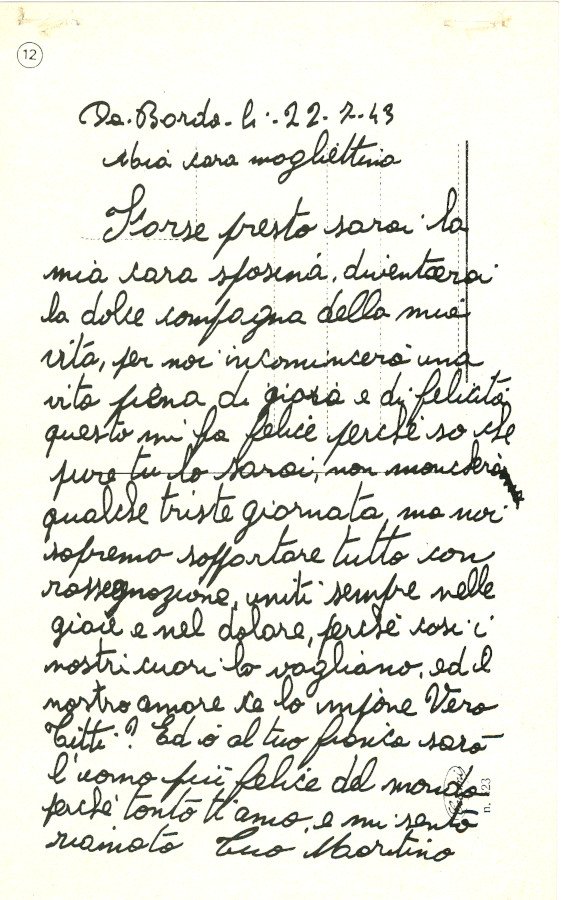 12
Da. Bordo. li. 22.7.43
Mia cara mogliettina
Forse presto sarai la
mia cara sposina, diventerai
la dolce compagna della mia
vita, per noi incomincerà una
vita piena di gioia e di felicità
questo mi fa felice perché so che
pure tu lo sarai, non mancherà
qualche triste giornata, ma noi
sapremo sopportare tutto con
rassegnazione, uniti sempre nelle
gioie e nel dolore, perché cosi i
nostri cuori lo vogliano, ed il
nostro amore ce lo impone Vero
Titti? Ed io al tuo fianco sarò
l'uomo più felice del mondo
perché tanto ti amo, e mi sento
riamato Tuo Maritino
n. 123